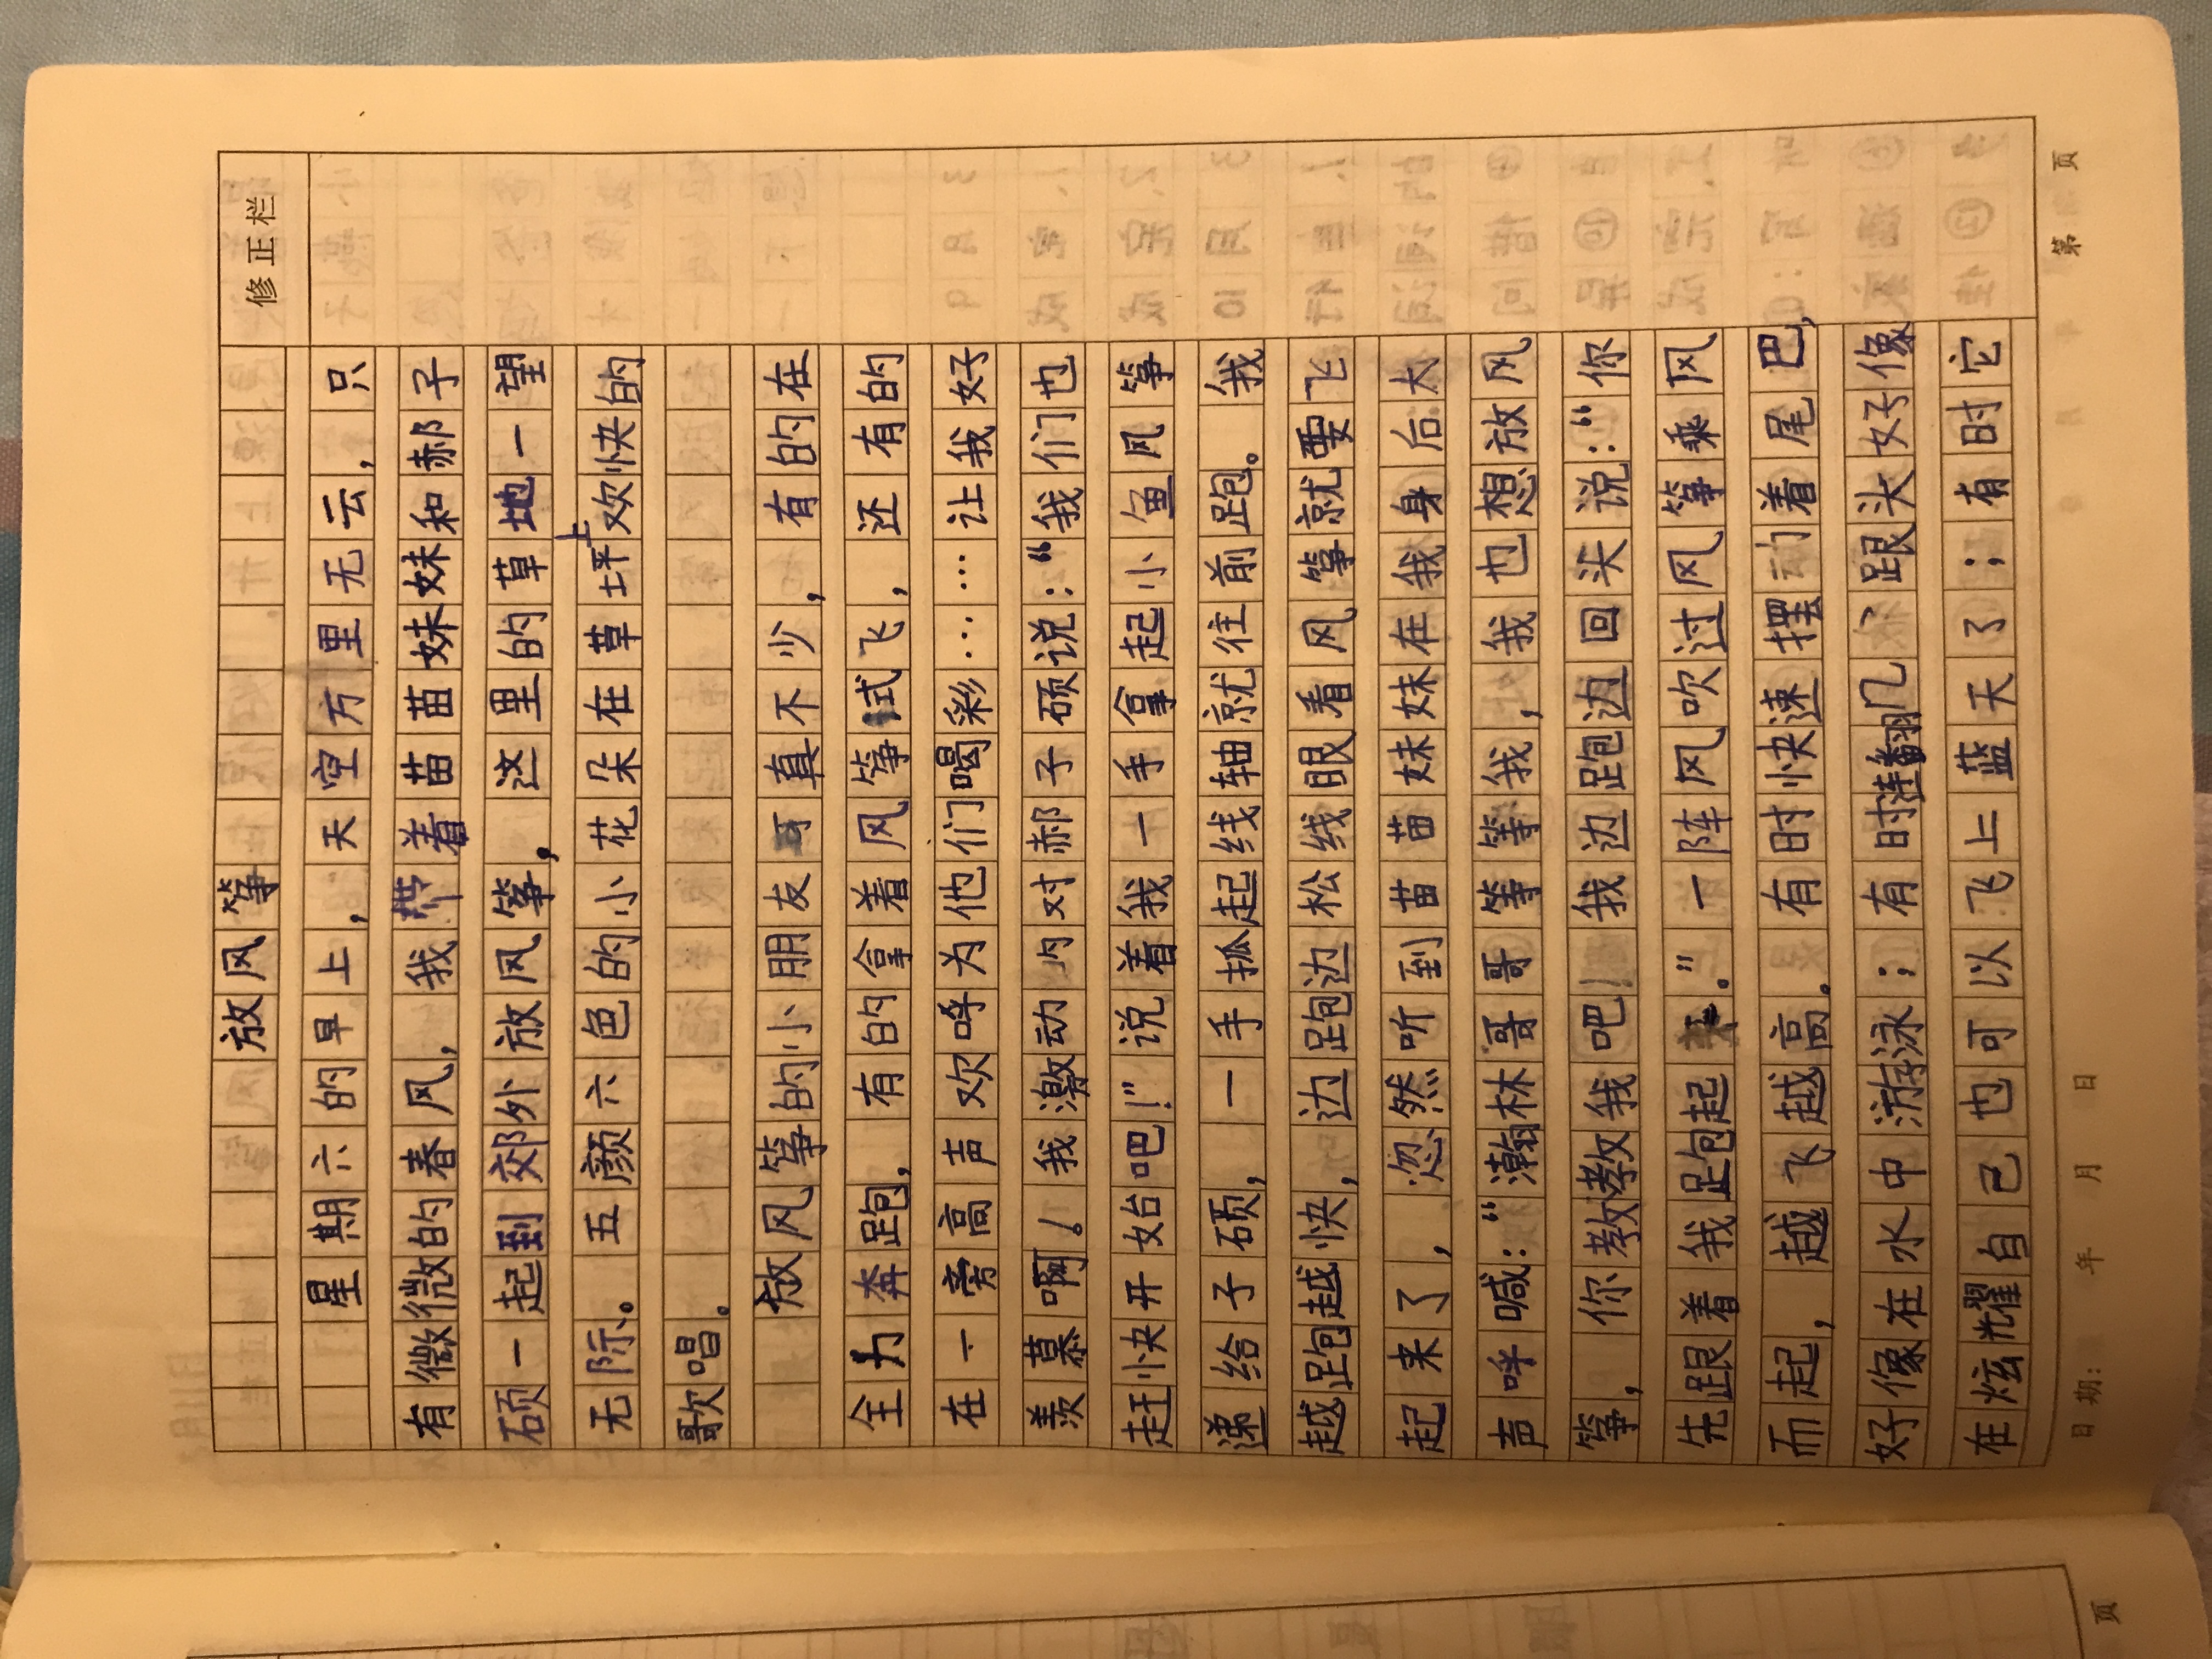 修正栏
放风筝
星期六的早上，天空万里无云，只
有微微的春风，我带着苗苗妹妹和郝子
硕一起到郊外放风筝，这里的草地一望
无际。五颜六色的小花朵在草坪上欢快的
歌唱。
放风筝的小朋友可真不少，有的在
全力奔跑，有的拿着风筝试飞，还有的
在一旁高声欢呼为他们喝彩……让我好
羡慕啊！我激动的对郝子硕说：“我们也
赶快开始吧！”说着我一手拿起小鱼风筝
递给子硕，一手抓起线轴就往前跑。我
越跑越快，边跑边松线眼看风筝就要飞
起来了，忽然听到苗苗妹妹在我身后大
声呼喊：“瀚林哥哥等等我，我也想放风
筝，你教教我吧！我边跑边回头说：“你
先跟着我跑起来。”一阵风吹过风筝乘风
而起，越飞越高。有时快速摆动着尾巴，
好像在水中游泳；有时连翻几个跟头好像
在炫耀自己也可以飞上蓝天了；有时它
日期： 年 月 日
第 页
页